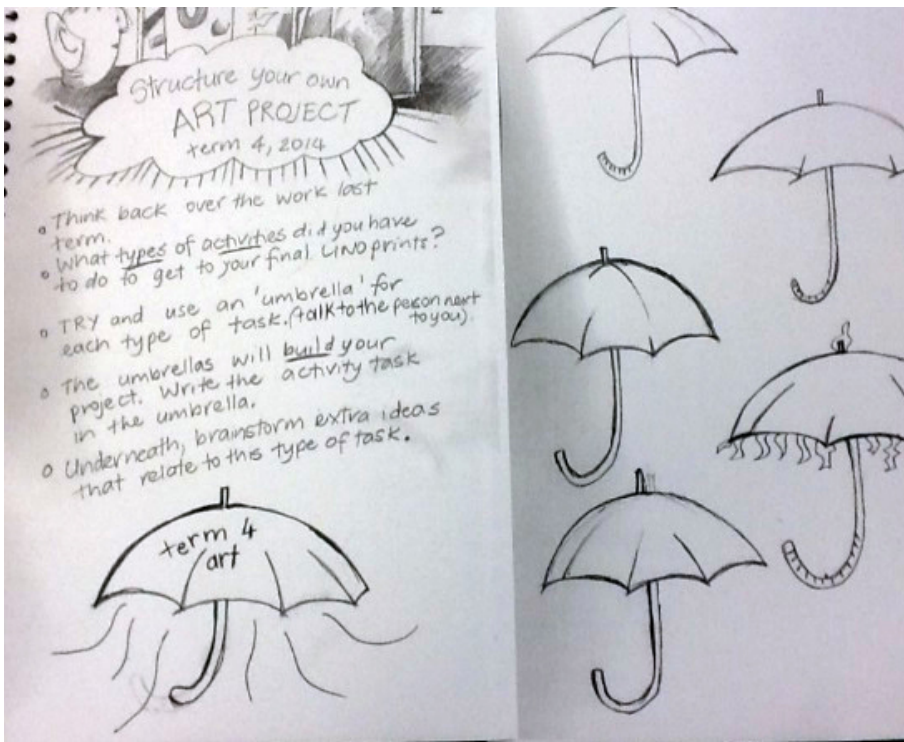 Structure your own
ART PROJECT
term 4, 2014
Think back over the work last
term.
What types of activities did you have
to do to get to your final LINO prints?
TRY and use an 'umbrella' for
each type of task. (talk to the person next
to you).
The umbrellas will build your
project. Write the activity task
in the umbrella.
Underneath, brainstorm extra ideas
that relate to this type of task.
term 4
art